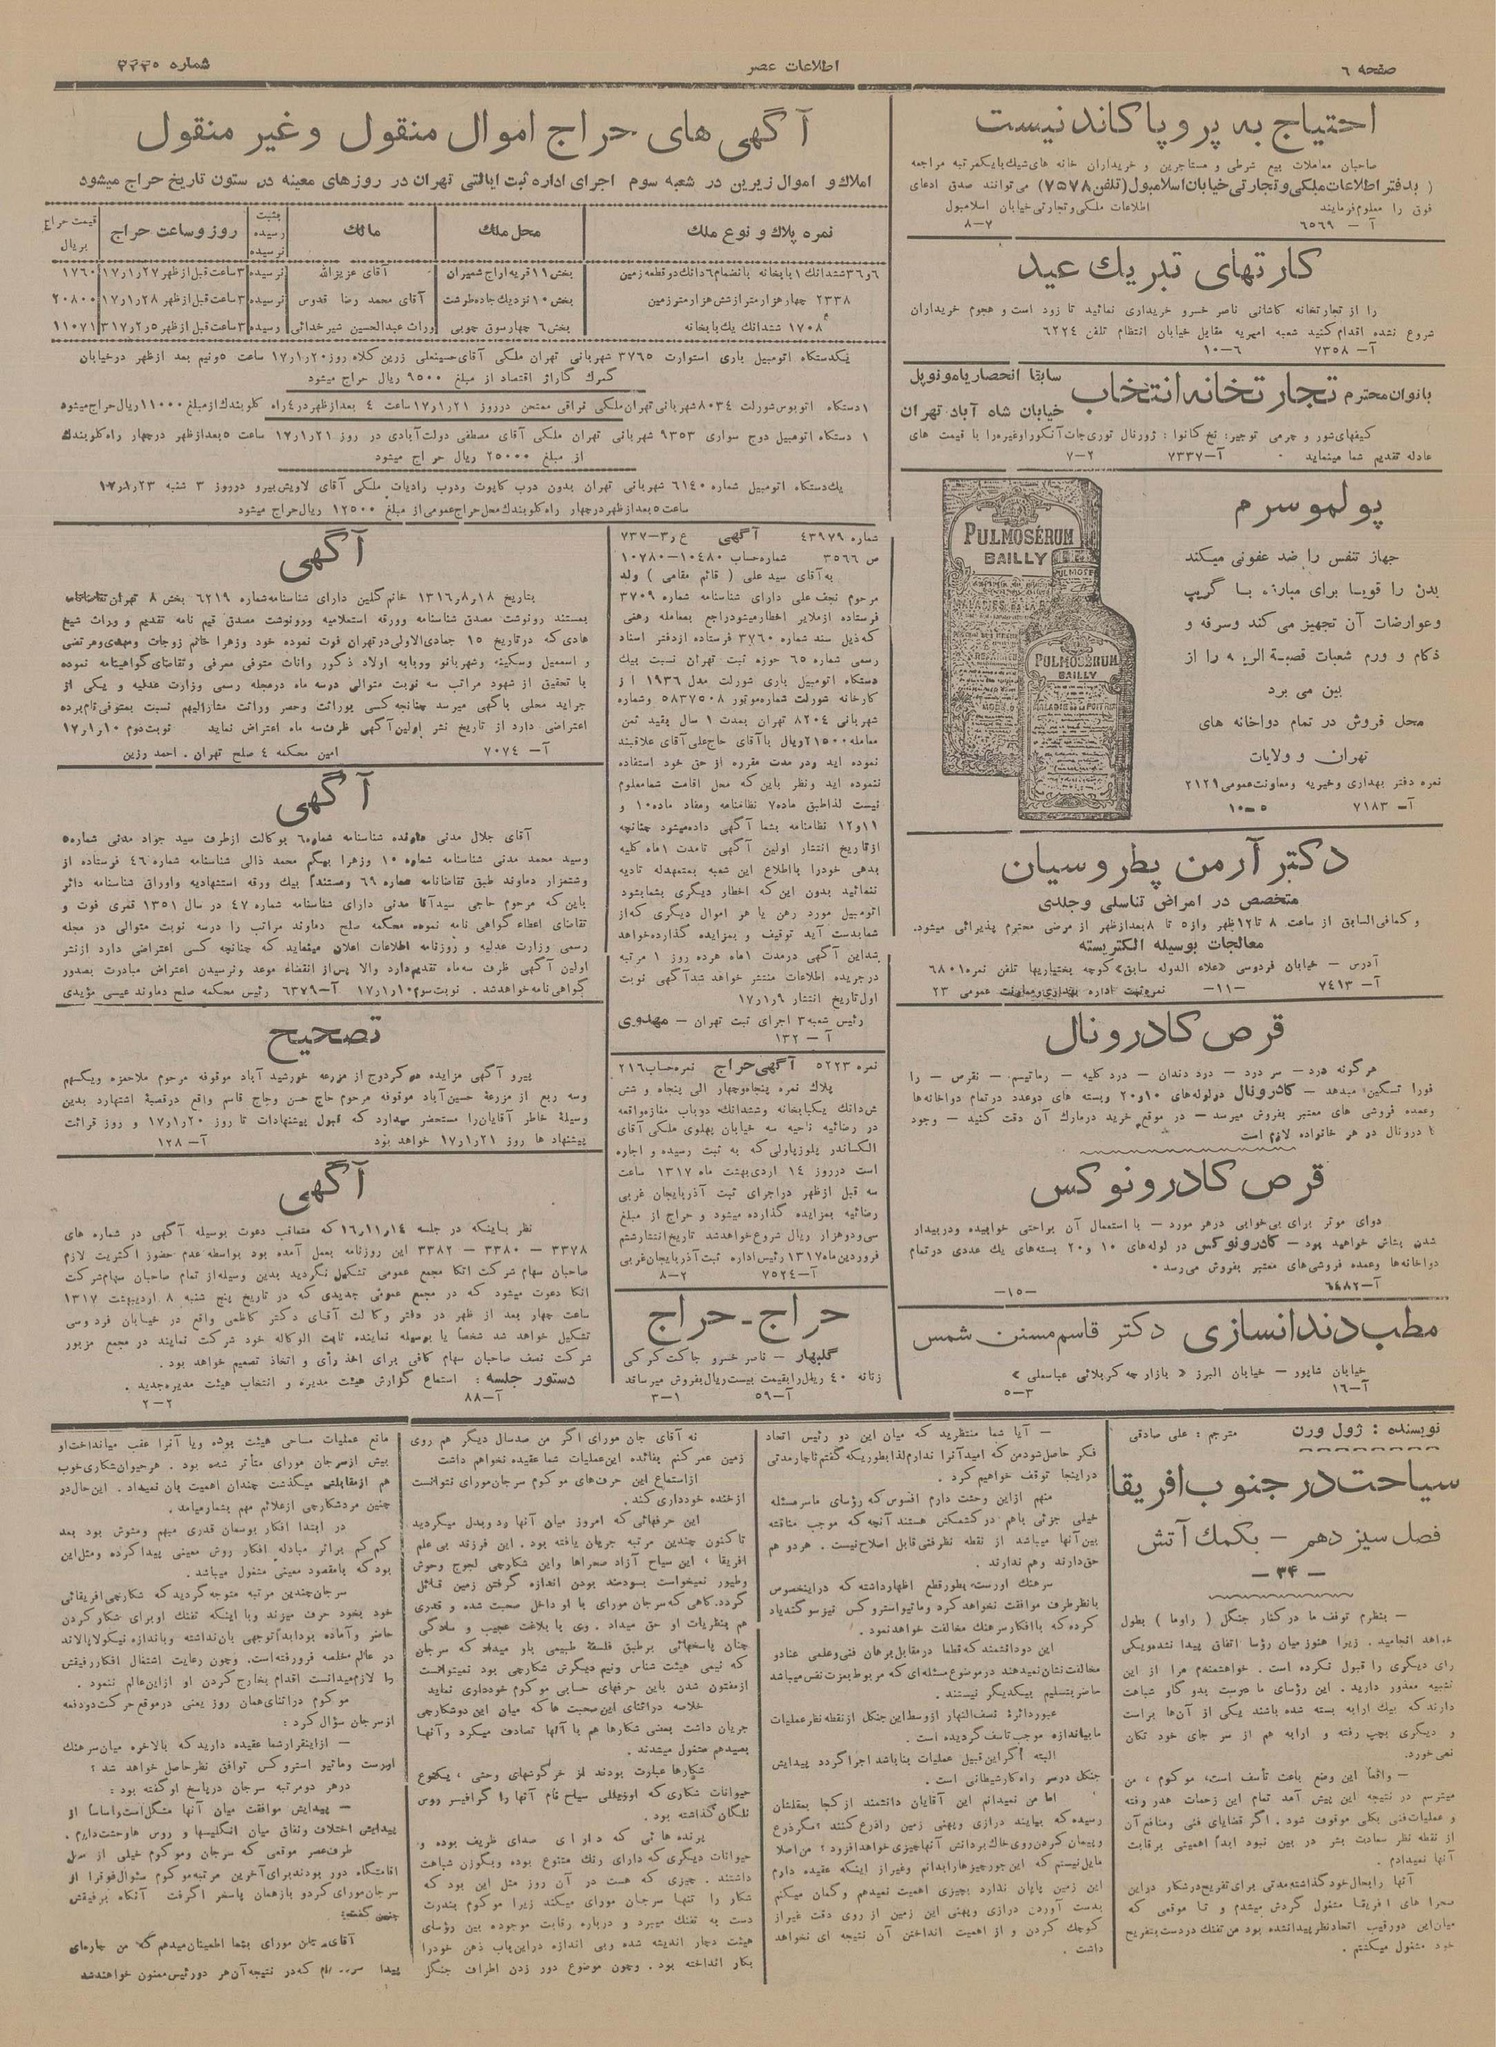 صفحه ٦
اطلاعات عصر
شماره ۳۳۳۵
احتیاج به پروپاکاند نیست
صاحبان معاملات بیع شرطی و مستاجرین و خریداران خانه های شیك با یکمرتبه مراجعه
( بدفتر اطلاعات ملکی و تجارتی خیابان اسلامبول (تلفن ۷٥۷۸) می توانند صدق ادعای
فوق را معلوم فرمایند اطلاعات ملکی و تجارتی خیابان اسلامبول
آ — ٦٥٦۹ ۷—۸
کارتهای تبریك عید
را از تجارتخانه کاشانی ناصر خسرو خریداری نمائید تا زود است و هجوم خریداران
شروع نشده اقدام کنید شعبه امیریه مقابل خیابان انتظام تلفن ٦۲۲٤
آ— ۷۳٥۸ ٦—۱۰
بانوان محترم تجارتخانه انتخاب سابقا انحصار یامونوپل
خیابان شاه آباد تهران
کیفهای شور و چرمی توجیر: نخ کانوا : ژورنال توری جات آنکورا وغیره را با قیمت های
عادله تقدیم شما مینماید آ—۷۳۳۷ ۲—۷
پولموسرم
جهاز تنفس را ضد عفونی میکند
بدن را قویا برای مبارزه با گریپ
وعوارضات آن تجهیز می کند و سرفه و
ذکام و ورم شعبات قصبة الریه را از
بین می برد
محل فروش در تمام دواخانه های
تهران و ولایات
نمره دفتر بهداری و خیریه و معاونت عمومی ۲۱۲۹
آ— ۷۱۸۳ ٥—۱۰
PULMOSÉRUM
BAILLY
PULMOSÉRUM
BAILLY
دکتر آرمن پطروسیان
متخصص در امراض تناسلی و جلدی
و کمافی السابق از ساعت ۸ تا ۱۲ ظهر و از ٥ تا ۸ بعدازظهر از مرضی محترم پذیرائی میشود.
معالجات بوسیله الکتریسته
آدرس — خیابان فردوسی «علاء الدوله سابق» کوچه بختیاریها تلفن نمره ٦۸۰۱
آ— ۷٤۱۳ —۱۱— نمره ثبت اداره بهداری و معاونت عمومی ۲۳
قرص کادرونال
هرگونه درد — سر درد — درد دندان — درد کلیه — رماتیسم — نقرس — را
فورا تسکین میدهد — کادرونال درلوله های ۱۰ و ۲۰ و بسته های دوعدد در تمام دواخانه ها
وعمده فروشی های معتبر بفروش میرسد — در موقع خرید درمارك آن دقت کنید — وجود
ادرونال در هر خانواده لازم است
قرص کادرونوکس
دوای موثر برای بی خوابی در هر مورد — با استعمال آن براحتی خوابیده و در بیدار
شدن بشاش خواهید بود — کادرونوکس در لوله های ۱۰ و ۲۰ بسته های یك عددی در تمام
دواخانه ها و عمده فروشی های معتبر بفروش می رسد
آ—٦٤۸۲ —۱٥—
مطب دندانسازی دکتر قاسم مسنن شمس
خیابان شاپور — خیابان البرز « بازارچه کربلائی عباسعلی »
آ—۱٦ ۳—٥
آگهی های حراج اموال منقول وغیر منقول
املاك و اموال زیرین در شعبه سوم اجرای اداره ثبت ایالتی تهران در روزهای معینه در ستون تاریخ حراج میشود
نمره پلاك و نوع ملك | محل ملك | مالك | بثبت رسیده نرسیده | روز و ساعت حراج | قیمت حراج بریال
٦ و ۳٦ ششدانك ۱ بابخانه بانضمام ٦ دانك دو قطعه زمین | بخش ۱۱ قریه اراج شمیران | آقای عزیزالله | نرسیده | ۳ ساعت قبل از ظهر ۱۷٫۱٫۲۷ | ۱۷٦۰
۲۳۳۸ چهار هزار متر از شش هزار متر زمین | بخش ۱۰ نزدیك جاده طرشت | آقای محمد رضا قدوس | نرسیده | ۳ ساعت قبل از ظهر ۱۷٫۱٫۲۸ | ۲۰۸۰۰
۱۷۰۸ ششدانك یك بابخانه | بخش ٦ چهارسوق چوبی | وراث عبدالحسین شیر خدائی | رسیده | ۳ ساعت قبل از ظهر ٥ر۲ر۳۱۷ | ۱۱۰۷۱
یکدستگاه اتومبیل باری استوارت ۳۷٦٥ شهربانی تهران ملکی آقای حسینعلی زرین کلاه روز ۲۰ر۱ر۱۷ ساعت ٥ ونیم بعد ازظهر در خیابان
گمرك گاراژ اقتصاد از مبلغ ۹٥۰۰ ریال حراج میشود
۱ دستگاه اتوبوس شورلت ۸۰۳٤ شهربانی تهران ملکی قراقی ممتحن در روز ۲۱ر۱ر۱۷ ساعت ٤ بعدازظهر در ٤ راه کلوبندك از مبلغ ۱۱۰۰۰ ریال حراج میشود
۱ دستگاه اتومبیل دوج سواری ۹۳٥۳ شهربانی تهران ملکی آقای مصطفی دولت آبادی در روز ۲۱ر۱ر۱۷ ساعت ٥ بعدازظهر در چهار راه کلوبندك
از مبلغ ۲٥۰۰۰ ریال حراج میشود
یك دستگاه اتومبیل شماره ٦۱٤۰ شهربانی تهران بدون درب کاپوت و درب رادیات ملکی آقای لاویش پیرو در روز ۳ شنبه ۲۳ر۱ر۱۷
ساعت ٥ بعدازظهر در چهار راه کلوبندك محل حراج عمومی از مبلغ ۱۲٥۰۰ ریال حراج میشود
شماره ٤۳۹۷۹ آگهی ع ر۳—۷۳۷
ص ۳٥٦٦ شماره حساب ۱۰٤۸۰—۱۰۷۸۰
به آقای سید علی ( قائم مقامی ) ولد
مرحوم نجف علی دارای شناسنامه شماره ۳۷۰۹
فرستاده از ملایر اخطار میشود راجع بمعامله رهنی
که ذیل سند شماره ۳۷٦۰ فرستاده از دفتر اسناد
رسمی شماره ٦٥ حوزه ثبت تهران نسبت بیك
دستگاه اتومبیل باری شورلت مدل ۱۹۳٦ از
کارخانه شورلت شماره موتور ٥۸۳۷٥۰۸ وشماره
شهربانی ۸۲۰٤ تهران بمدت ۱ سال بقید ثمن
معامله ۲۱٥۰۰ ریال با آقای حاج علی آقای علاقبند
نموده اید و در مدت مقرره از حق خود استفاده
ننموده اید ونظر باین که محل اقامت شما معلوم
نیست لذا طبق ماده ۷ نظامنامه ومفاد ماده ۱۰ و
۱۱ و ۱۲ نظامنامه بشما آگهی داده میشود چنانچه
از تاریخ انتشار اولین آگهی تا مدت ۱ ماه کلیه
بدهی خود را با اطلاع این شعبه بمتعهدله تادیه
ننمائید بدون این که اخطار دیگری بشما بشود
اتومبیل مورد رهن یا هر اموال دیگری که از
شما بدست آید توقیف و بمزایده گذارده خواهد
شد این آگهی در مدت ۱ ماه هرده روز ۱ مرتبه
در جریده اطلاعات منتشر خواهد شد آگهی نوبت
اول تاریخ انتشار ۹ر۱ر۱۷
رئیس شعبه ۳ اجرای ثبت تهران — مهدوی
آ — ۱۳۲
نمره ٥۲۲۳ آگهی حراج نمره حساب ۲۱٦
پلاك نمره پنجاه وچهار الی پنجاه و شش
ش دانك یکبابخانه وششدانك دو باب مغازه واقعه
در رضائیه ناحیه سه خیابان پهلوی ملکی آقای
الکساندر یلوزپاولی که به ثبت رسیده و اجاره
است در روز ۱٤ اردیبهشت ماه ۱۳۱۷ ساعت
سه قبل از ظهر در اجرای ثبت آذربایجان غربی
رضائیه بمزایده گذارده میشود و حراج از مبلغ
سی و دو هزار ریال شروع خواهد شد تاریخ انتشار ششم
فروردین ماه ۱۳۱۷ رئیس اداره ثبت آذربایجان غربی
آ—۷٥۲٤ ۲—۸
حراج - حراج
گلبهار — ناصر خسرو جاکت کرکی
زنانه ٤۰ ریال را بقیمت بیست ریال بفروش میرساند
آ—٥۹ ۱—۳
آگهی
بتاریخ ۱۸ر۸ر۱۳۱٦ خانم گلین دارای شناسنامه شماره ٦۲۱۹ بخش ۸ تهران تقاضانامه
بمستند رونوشت مصدق شناسنامه وورقه استعلامیه ورونوشت مصدق قیم نامه تقدیم و وراث شیخ
هادی که در تاریخ ۱٥ جمادی الاولی در تهران فوت نموده خود وزهرا خانم زوجات ومهدی ومرتضی
و اسمعیل وسکینه وشهربانو وربابه اولاد ذکور واناث متوفی معرفی و تقاضای گواهینامه نموده
با تحقیق از شهود مراتب سه نوبت متوالی در سه ماه در مجله رسمی وزارت عدلیه و یکی از
جراید محلی بآگهی میرسد چنانچه کسی بوراثت وحصر وراثت مشارالیهم نسبت بمتوفی نام برده
اعتراضی دارد از تاریخ نشر اولین آگهی ظرف سه ماه اعتراض نماید نوبت دوم ۱۰ر۱ر۱۷
آ— ۷۰۷٤ امین محکمه ٤ صلح تهران . احمد رزین
آگهی
آقای جلال مدنی دماوند شناسنامه شماره ٦ بوکالت از طرف سید جواد مدنی شماره ٥
وسید محمد مدنی شناسنامه شماره ۱۰ وزهرا بیگم محمد ذالی شناسنامه شماره ٤٦ فرستاده از
وشتمزار دماوند طبق تقاضانامه شماره ٦۹ ومستنداً بیك ورقه استشهادیه واوراق شناسنامه دائر
باین که مرحوم حاجی سید آقا مدنی دارای شناسنامه شماره ٤۷ در سال ۱۳٥۱ قمری فوت و
تقاضای اعطاء گواهی نامه نموده محکمه صلح دماوند مراتب را در سه نوبت متوالی در مجله
رسمی وزارت عدلیه و روزنامه اطلاعات اعلان مینماید که چنانچه کسی اعتراضی دارد از نشر
اولین آگهی ظرف سه ماه تقدیم دارد والا پس از انقضاء موعد ونرسیدن اعتراض مبادرت بصدور
گواهی نامه خواهد شد . نوبت سوم ۱۰ر۱ر۱۷ آ—٦۳۷۹ رئیس محکمه صلح دماوند عیسی مؤیدی
تصحیح
پیرو آگهی مزایده ده کردوج از مزرعه خورشید آباد موقوفه مرحوم ملاحمزه ویکسهم
وسه ربع از مزرعهٔ حسین آباد موقوفه مرحوم حاج حسن وحاج قاسم واقع درقصبهٔ اشتهارد بدین
وسیله خاطر آقایان را مستحضر میدارد که قبول پیشنهادات تا روز ۲۰ر۱ر۱۷ و روز قرائت
پیشنهاد ها روز ۲۱ر۱ر۱۷ خواهد بود آ—۱۲۸
آگهی
نظر باینکه در جلسه ۱٤ر۱۱ر۱٦ که متعاقب دعوت بوسیله آگهی در شماره های
۳۳۷۸ — ۳۳۸۰ — ۳۳۸۲ این روزنامه بعمل آمده بود بواسطه عدم حضور اکثریت لازم
صاحبان سهام شرکت اتکا مجمع عمومی تشکیل نگردید بدین وسیله از تمام صاحبان سهام شرکت
اتکا دعوت میشود که در مجمع عمومی جدیدی که در تاریخ پنج شنبه ۸ اردیبهشت ۱۳۱۷
ساعت چهار بعد از ظهر در دفتر وکالت آقای دکتر کاظمی واقع در خیابان فردوسی
تشکیل خواهد شد شخصاً یا بوسیله نماینده ثابت الوکاله خود شرکت نمایند در مجمع مزبور
شرکت نصف صاحبان سهام کافی برای اخذ رأی و اتخاذ تصمیم خواهد بود .
دستور جلسه : استماع گزارش هیئت مدیره و انتخاب هیئت مدیره جدید .
آ—۸۸ ۲—۲
نویسنده : ژول ورن مترجم : علی صادقی
سیاحت در جنوب افریقا
فصل سیزدهم — بکمك آتش
— ۳۴ —
— بنظرم توقف ما در کنار جنگل ( راوما ) بطول
خواهد انجامید . زیرا هنوز میان رؤسا اتفاق پیدا نشده و یکی
رای دیگری را قبول نکرده است . خواهشمندم مرا از این
تشبیه معذور دارید . این رؤسای ما درست بدو گاو شباهت
دارند که بیك ارابه بسته شده باشند یکی از آن ها براست
و دیگری بچپ رفته و ارابه هم از سر جای خود تکان
نمی خورد.
— واقعاً این وضع باعث تأسف است، موکوم ، من
میترسم در نتیجه این پیش آمد تمام این زحمات هدر رفته
و عملیات فنی بکلی موقوف شود . اگر قضایای فنی و منافع آن
از نقطه نظر سعادت بشر در بین نبود ابداً اهمیتی برقابت
آنها نمیدادم .
آنها را بحال خود گذاشته مدتی برای تفریح در شکار در این
صحرا های افریقا مشغول گردش میشدم و تا موقعی که
میان این دو رقیب اتحاد نظر پیدا نشده بود من تفنك در دست بتفریح
خود مشغول میگشتم .
— آیا شما منتظرید که میان این دو رئیس اتحاد
فکر حاصل شود من که امید آنرا ندارم لذا بطوریکه گفتم ناچار مدتی
در اینجا توقف خواهیم کرد .
منهم از این وحشت دارم افسوس که رؤسای ما سر مسئله
خیلی جزئی باهم در کشمکش هستند آنچه که موجب مناقشه
بین آنها میباشد از نقطه نظر فنی قابل اصلاح نیست . هر دو هم
حق دارند وهم ندارند .
سرهنك اورست بطور قطع اظهار داشته که در اینخصوص
با نظر طرف موافقت نخواهد کرد وماتیواستروکس نیز سوگند یاد
کرده که با افکار سرهنك مخالفت خواهد نمود .
این دو دانشمند که قطعا در مقابل برهان فنی وعلمی عناد و
مخالفت نشان نمیدهند در موضوع مسئله ای که مربوط بعزت نفس میباشد
حاضر بتسلیم بیکدیگر نیستند .
عبور دائرهٔ نصف النهار از وسط این جنگل از نقطه نظر عملیات
ما بی اندازه موجب تأسف گردیده است .
البته اگر این قبیل عملیات بنا باشد اجرا گردد پیدایش
جنگل در سر راه کار شیطانی است .
اما من نمیدانم این آقایان دانشمند از کجا بعقلشان
رسیده که بیایند درازی و پهنی زمین را ذرع کنند ؟ مگر ذرع
و پیمان کردن روی خاك بردانش آنها چیزی خواهد افزود ؟ من اصلا
مایل نیستم که این جور چیزها را بدانم وغیر از اینکه عقیده دارم
این زمین پایان ندارد بچیزی اهمیت نمیدهم و گمان میکنم
بدست آوردن درازی و پهنی این زمین از روی دقت غیر از
کوچك کردن و از اهمیت انداختن آن نتیجه ای نخواهد
داشت .
نه آقای جان مورای اگر من صد سال دیگر هم روی
زمین عمر کنم بفائده این عملیات شما عقیده نخواهم داشت
از استماع این حرف های موکوم سرجان مورای نتوانست
از خنده خودداری کند .
این حرفهائی که امروز میان آنها رد و بدل میگردید
تا کنون چندین مرتبه جریان یافته بود . این فرزند بی علم
افریقا ، این سیاح آزاد صحراها واین شکارچی لجوج وحوش
وطیور نمیخواست بسودمند بودن اندازه گرفتن زمین قائل
گردد. گاهی که سرجان مورای با او داخل صحبت شده و قدری
هم بنظریات او حق میداد . وی با بلاغت عجیب و سادگی
چنان پاسخهائی بر طبق فلسفهٔ طبیعی باو میداد که سرجان
که نیمی هیئت شناس ونیم دیگرش شکارچی بود نمیتوانست
از مفتون شدن باین حرفهای حسابی موکوم خودداری نماید
خلاصه در اثنای این صحبت ها که میان این دو شکارچی
جریان داشت بعضی شکارها هم با آنها تصادف میکرد و آنها
بصید هم مشغول میشدند .
شکارها عبارت بودند از خرگوشهای وحشی ، یکنوع
حیوانات شکاری که اوزیللی سیاح نام آنها را گرافیسر روس
نلکان گذاشته بود .
پرنده هائی که دارای صدای ظریف بوده و
حیوانات دیگری که دارای رنك متنوع بوده وبگوزن شباهت
داشتند . چیزی که هست در آن روز مثل این بود که
شکار را تنها سرجان مورای میکند زیرا موکوم بندرت
دست به تفنك میبرد و درباره رقابت موجوده بین رؤسای
هیئت دچار اندیشه شده وبی اندازه در این باب ذهن خود را
بکار انداخته بود . وچون موضوع دور زدن اطراف جنگل
مانع عملیات مساحی هیئت بوده و یا آنرا عقب میانداخت او
بیش از سرجان مورای متأثر شده بود . هر حیوان شکاری خوب
هم از مقابلش میگذشت چندان اهمیت بان نمیداد . این حال در
چنین مرد شکارچی از علائم مهم بشمار میامد .
در ابتدا افکار بوسمان قدری مبهم ومشوش بود بعد
کم کم براثر مبادله افکار روش معینی پیدا کرده ومثل این
بود که با مقصود معینی مشغول میباشد .
سرجان چندین مرتبه متوجه گردید که شکارچی افریقائی
خود بخود حرف میزند وبا اینکه تفنك او برای شکار کردن
حاضر و آماده بود ابداً توجهی بان نداشته وباندازه نیکولا پالاند
در عالم مخلصه فرو رفته است . وچون رعایت اشتغال افکار رفیقش
را لازم میدانست اقدام بخارج کردن او از این عالم ننمود .
موکوم در اثنای همان روز یعنی در موقع حرکت دو دفعه
از سرجان سؤال کرد :
— از اینقرار شما عقیده دارید که بالاخره میان سرهنك
اورست وماتیو استروکس توافق نظر حاصل خواهد شد ؟
در هر دو مرتبه سرجان در پاسخ او گفته بود :
— پیدایش موافقت میان آنها مشکل است و اساساً از
پیدایش اختلاف ونفاق میان انگلیسها و روس ها وحشت دارم .
طرف عصر موقعی که سرجان وموکوم خیلی از محل
اقامتگاه دور بودند برای آخرین مرتبه موکوم سئوال فوق را از
سرجان مورای کرد و باز همان پاسخ را گرفت آنگاه برفیقش
چنین گفت :
آقای جان مورای بشما اطمینان میدهم که من چاره ای
پیدا ام که در نتیجه آن هر دو رئیس ممنون خواهند شد